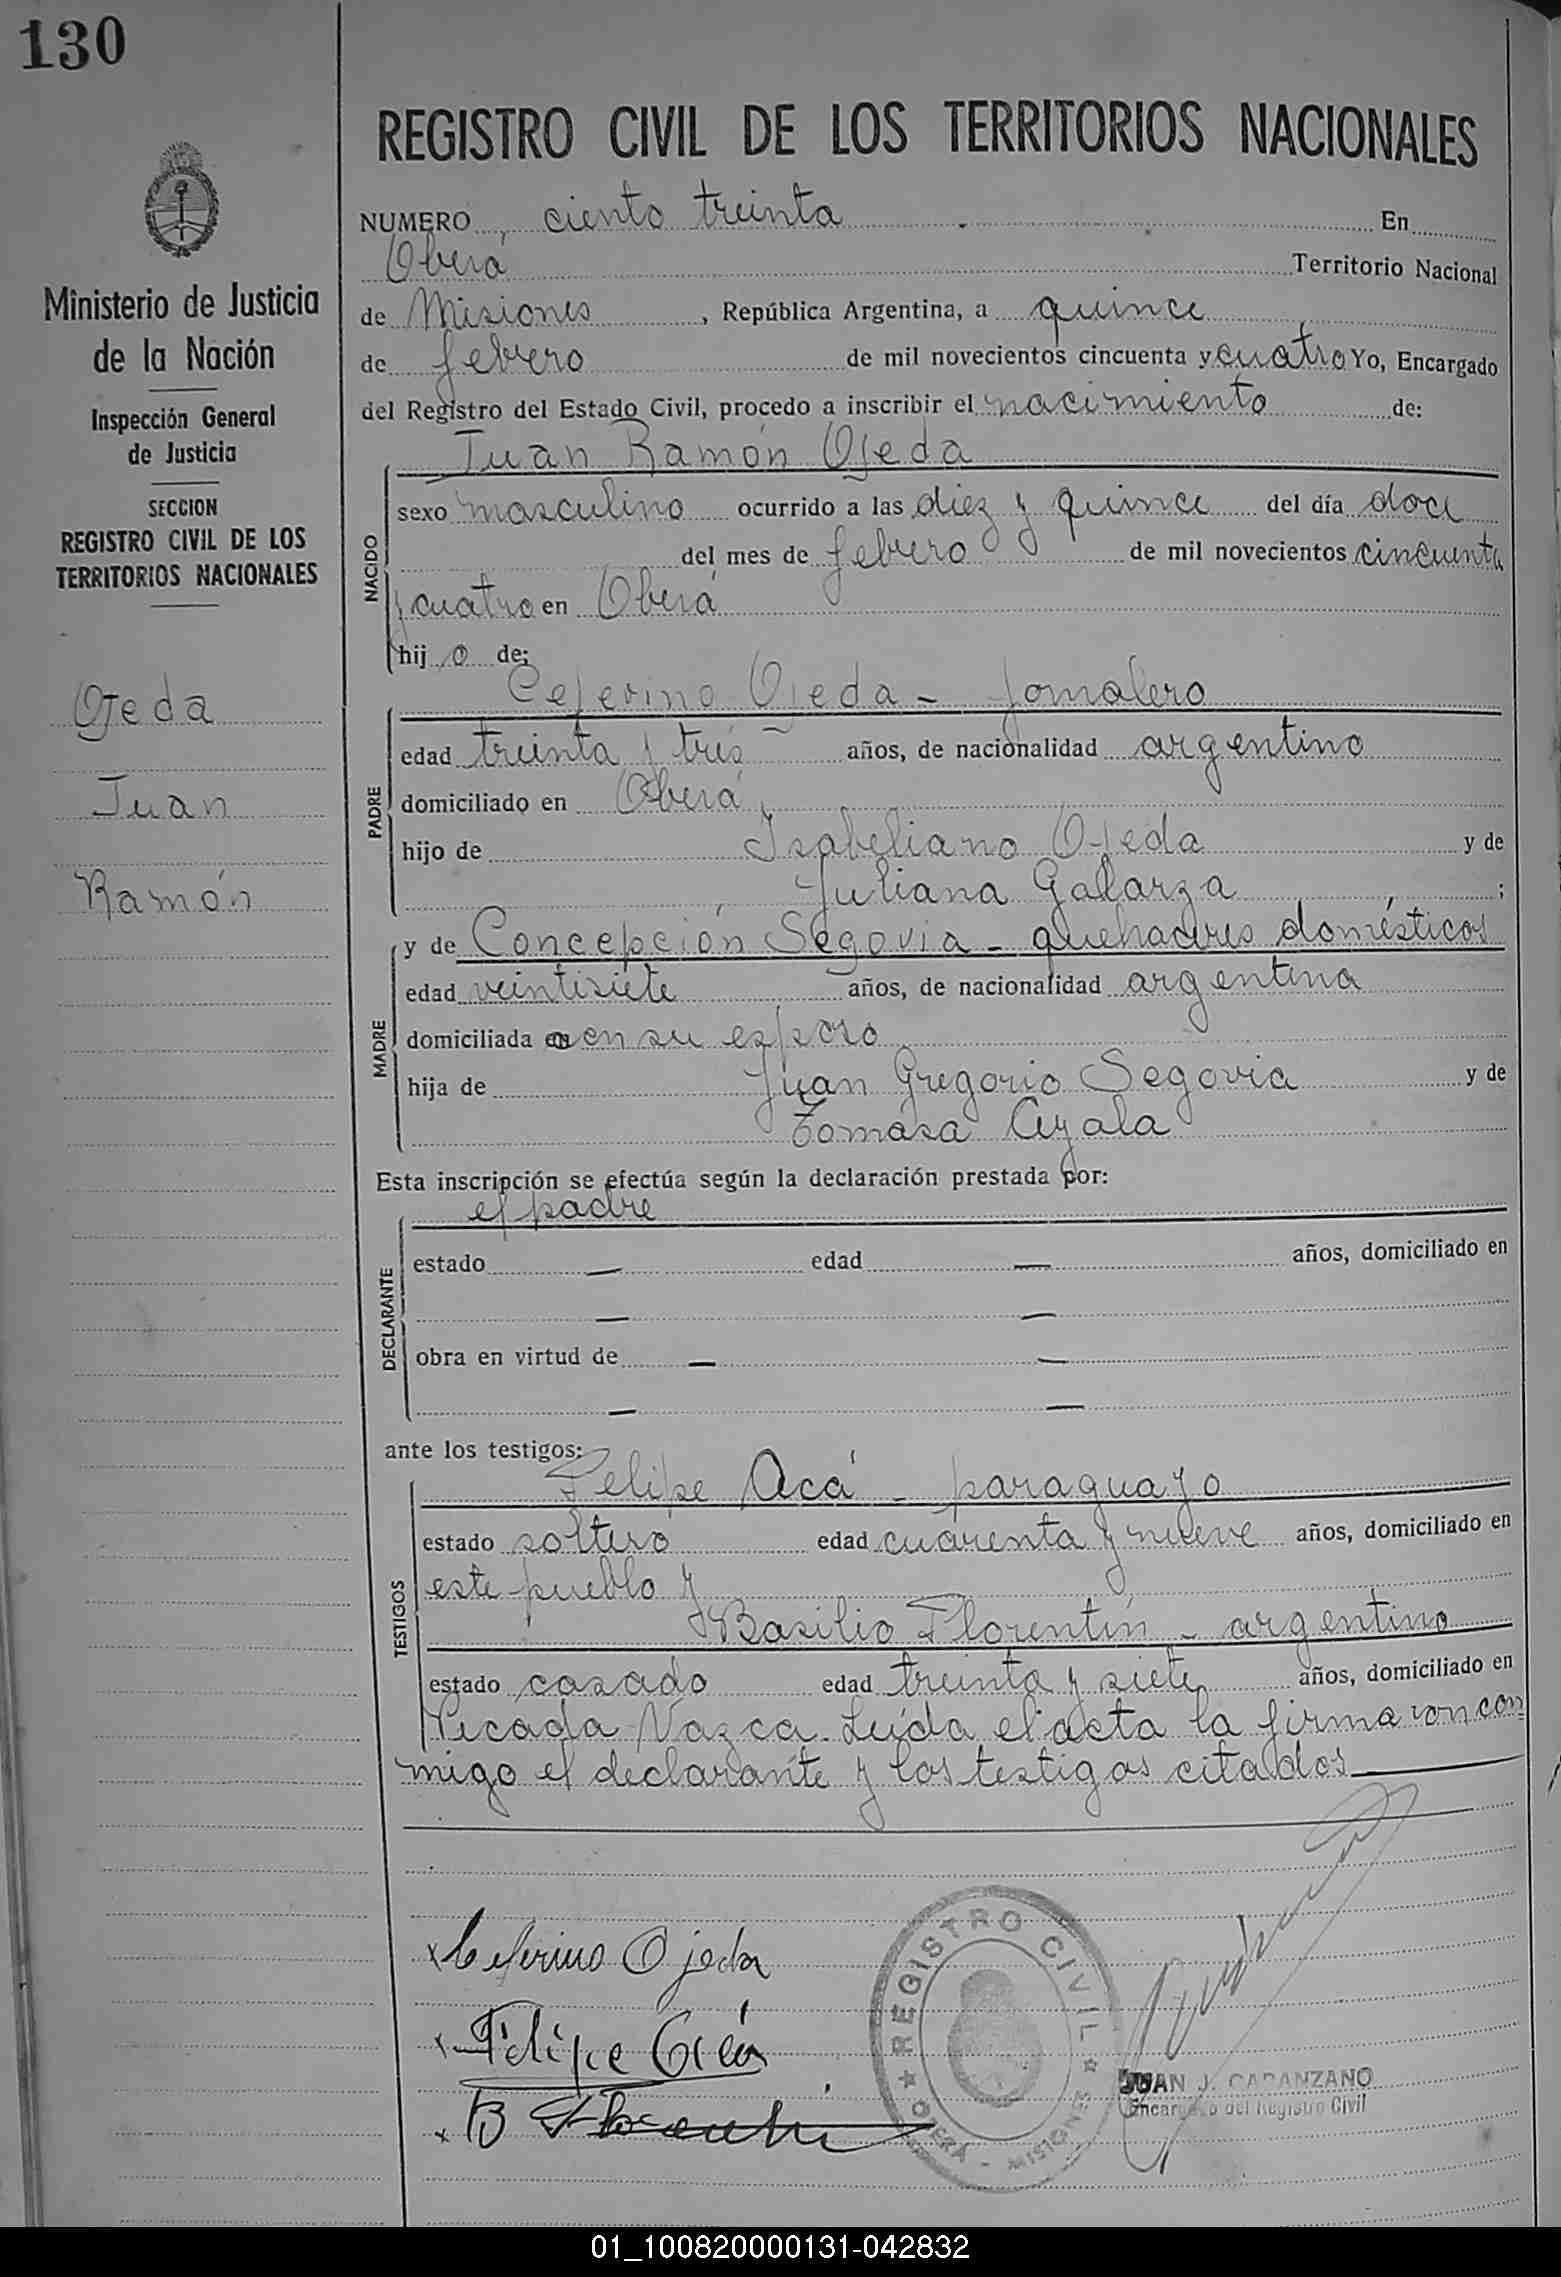 130
REGISTRO CIVIL DE LOS TERRITORIOS NACIONALES
NUMERO ciento treinta En
Oberá Territorio Nacional
de Misiones, República Argentina, a quince
de febrero de mil novecientos cincuenta y cuatro Yo, Encargado
del Registro del Estado Civil, procedo a inscribir el nacimiento de:
Juan Ramón Ojeda
NACIDO
sexo masculino ocurrido a las diez y quince del día doce
del mes de febrero de mil novecientos cincuenta
y cuatro en Oberá
hijo de:
Ceferino Ojeda - jornalero
PADRE
edad treinta y tres años, de nacionalidad argentino
domiciliado en Oberá
hijo de Isabeliano Ojeda y de
Juliana Galarza ;
y de Concepción Segovia - quehaceres domésticos
MADRE
edad veintisiete años, de nacionalidad argentina
domiciliada con su esposo
hija de Juan Gregorio Segovia y de
Tomasa Ayala
Esta inscripción se efectúa según la declaración prestada por:
el padre
DECLARANTE
estado — edad — años, domiciliado en
— —
obra en virtud de — —
— —
ante los testigos:
Felipe Acá - paraguayo
TESTIGOS
estado soltero edad cuarenta y nueve años, domiciliado en
este pueblo y
Basilio Florentín - argentino
estado casado edad treinta y siete años, domiciliado en
Picada Vazca. Leída el acta la firmaron con
migo el declarante y los testigos citados
Ministerio de Justicia
de la Nación
Inspección General
de Justicia
SECCION
REGISTRO CIVIL DE LOS
TERRITORIOS NACIONALES
Ojeda
Juan
Ramón
x Ceferino Ojeda
x Felipe Acá
x B Florentin
REGISTRO CIVIL
OBERÁ - MISIONES
JUAN J. CAPANZANO
Encargado del Registro Civil
01_100820000131-042832